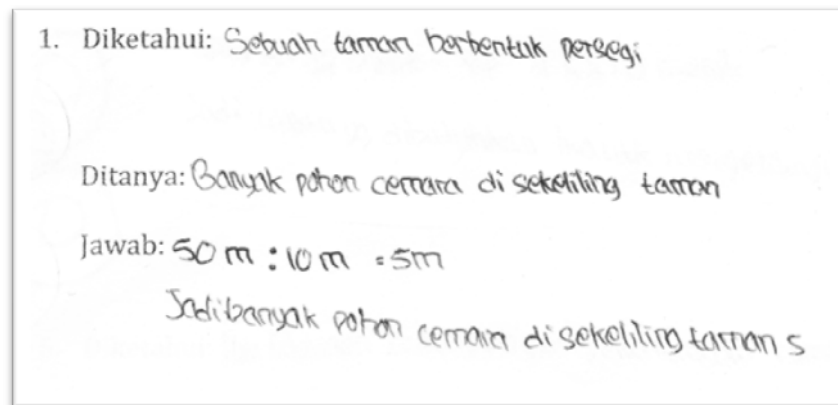 1. Diketahui: Sebuah taman berbentuk persegi
Ditanya: Banyak pohon cemara di sekeliling taman
Jawab: 50 m : 10 m = 5m
Jadi banyak pohon cemara di sekeliling taman 5